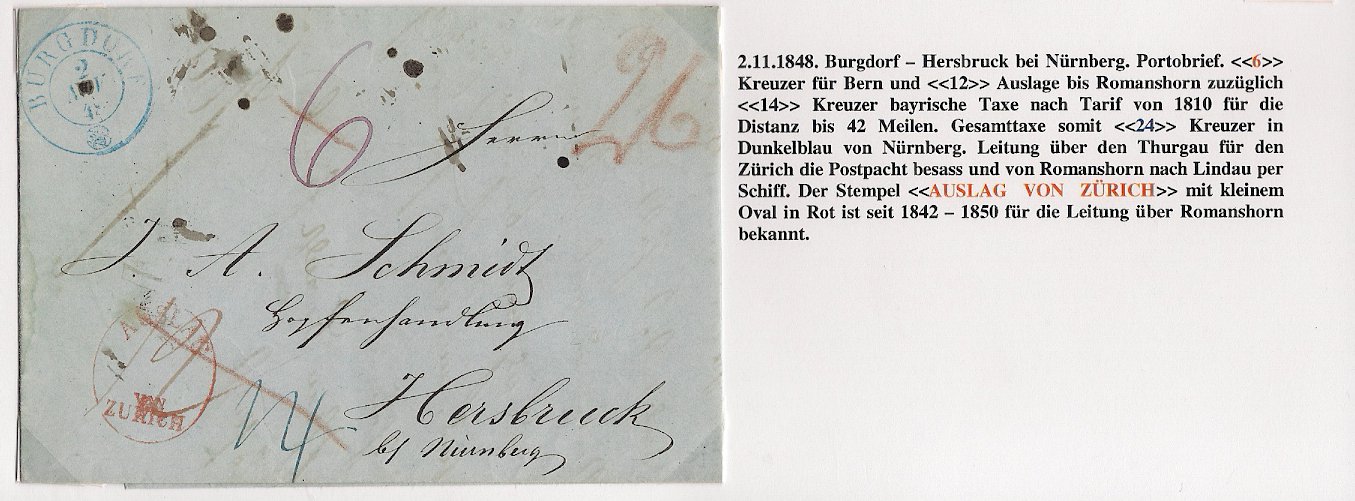 BURGDORF
2
NOV
48
6
26
Herrn
J. A. Schmidt
Hopfenhandlung
Hersbruck
b/ Nürnberg
AUSLAG
VON
ZÜRICH
12
14
2.11.1848. Burgdorf – Hersbruck bei Nürnberg. Portobrief. <<6>>
Kreuzer für Bern und <<12>> Auslage bis Romanshorn zuzüglich
<<14>> Kreuzer bayrische Taxe nach Tarif von 1810 für die
Distanz bis 42 Meilen. Gesamttaxe somit <<24>> Kreuzer in
Dunkelblau von Nürnberg. Leitung über den Thurgau für den
Zürich die Postpacht besass und von Romanshorn nach Lindau per
Schiff. Der Stempel <<AUSLAG VON ZÜRICH>> mit kleinem
Oval in Rot ist seit 1842 – 1850 für die Leitung über Romanshorn
bekannt.